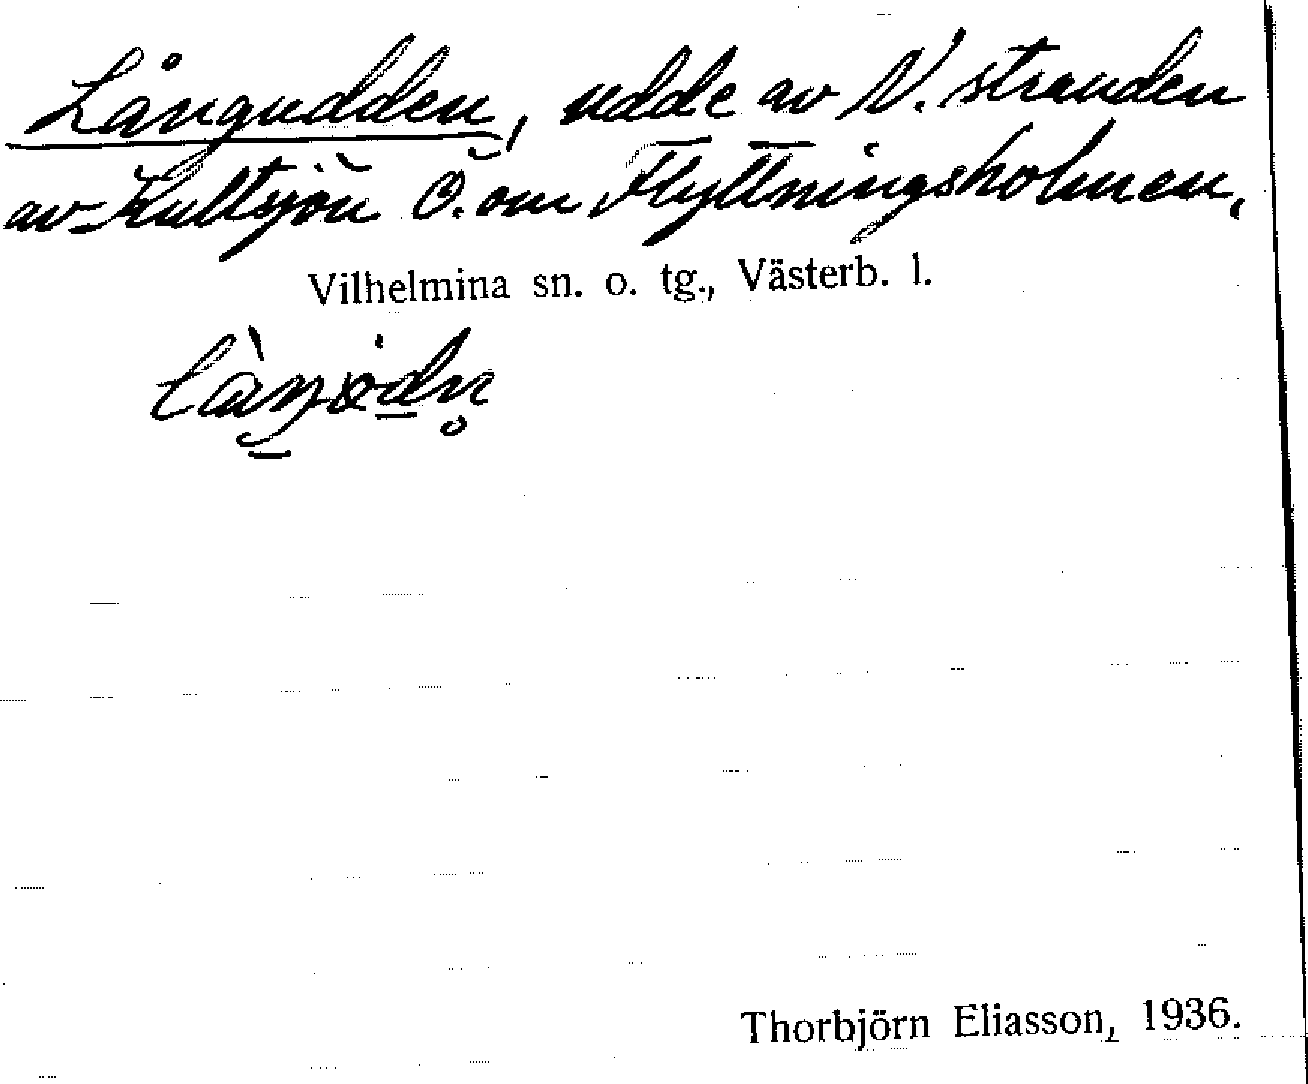 Långudden, udde av N. stranden
av Kultsjön Ö. om Flyttningsholmen,
Vilhelmina sn. o. tg., Västerb. l.
Thorbjörn Eliasson, 1936.